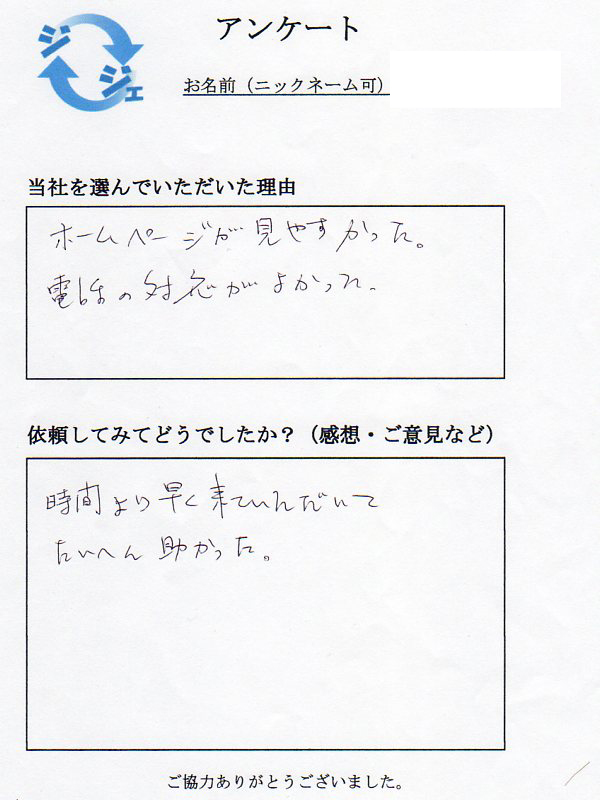 ジジェ
アンケート
お名前（ニックネーム可）
当社を選んでいただいた理由
ホームページが見やすかった。
電話の対応がよかった。
依頼してみてどうでしたか？（感想・ご意見など）
時間より早く来ていただいて
たいへん助かった。
ご協力ありがとうございました。